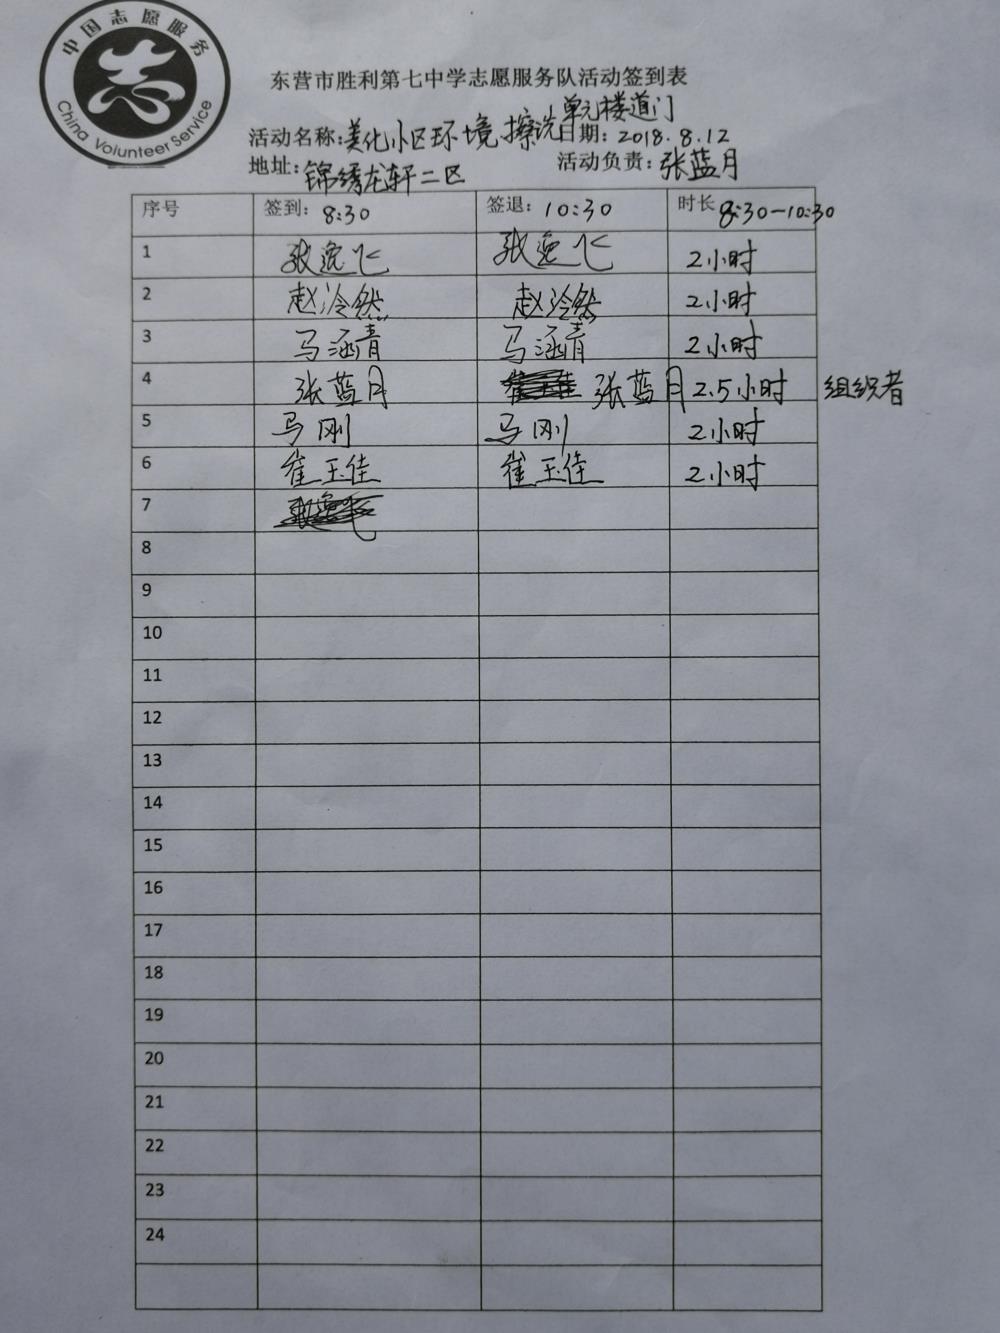 中国志愿服务
China Volunteer Service
东营市胜利第七中学志愿服务队活动签到表
活动名称:美化小区环境,擦洗单元楼道门 日期:2018.8.12
地址:锦绣龙轩二区 活动负责:张蓝月
序号 签到:8:30 签退:10:30 时长 8:30-10:30
1 张逸飞 张逸飞 2小时
2 赵泠然 赵泠然 2小时
3 马涵青 马涵青 2小时
4 张蓝月 张蓝月 2.5小时 组织者
5 马刚 马刚 2小时
6 崔玉佳 崔玉佳 2小时
7
8
9
10
11
12
13
14
15
16
17
18
19
20
21
22
23
24